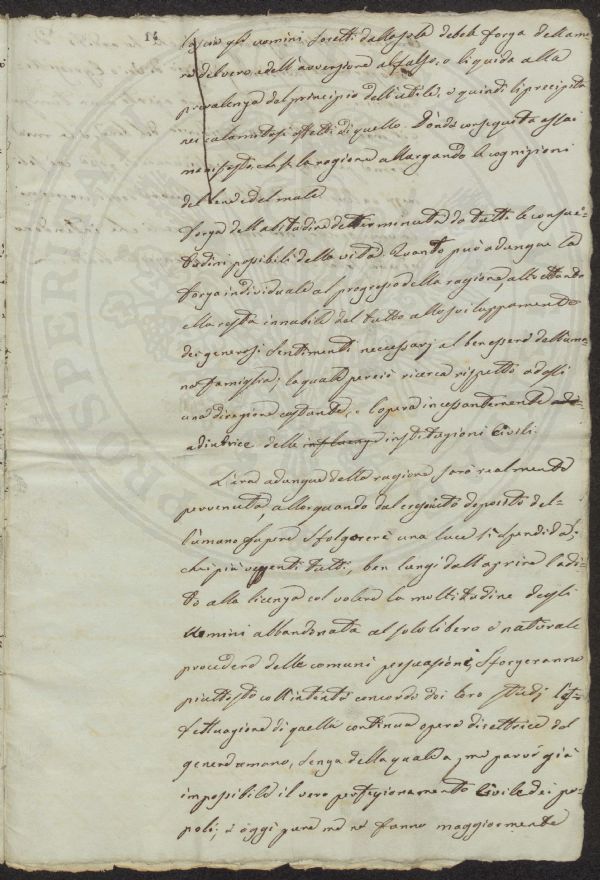 14
lascia gli uomini soretti dalla sola debole forza dell'amo
re del vero e dell'avversione al falso, o li guida alla
prevalenza del principio dell'utile, e quindi li precipita
nei calamitosi effetti di quello. Donde conseguita assai
manifesto, che se la ragione allargando le cognizioni
del bene e del male
forza dell'abitudine determinata da tutte le consue-
tudini possibili della vita. Quanto può adunque la
forza individuale al progresso della ragione, altrettanto
ella resta innabile del tutto allo sviluppamento
dei generosi sentimenti necessarj al ben essere dell'uma
na famiglia; la quale perciò ricerca rispetto ad essi
una direzione costante, e l'opera incessantemente
adiutrice delle influenze instituzioni Civili.
L'era adunque della ragione sarà realmente
pervenuta, allorquando dal cresciuto deposito del-
l'umano sapere sfolgorerà una luce sì splendida,
che i più veggenti tutti, ben lungi dall'aprire l'adi-
to alla licenza col volere la moltitudine degli
uomini abbandonata al solo libero e naturale
procedere delle comuni persuasioni, sforzeranno
piuttosto coll'intento concorde dei loro studj l'ef-
fettuazione di quella continua opera direttrice del
genere umano, senza della quale a me parve già
impossibile il vero perfezionamento Civile dei po-
poli; e oggi pure me ne fanno maggiormente
PROSPERI